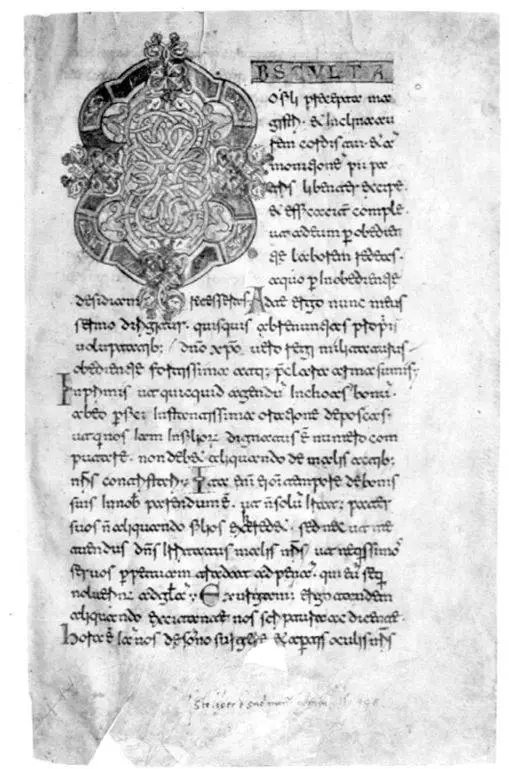 O BSCULTA
o fili precepta ma
gistri. & inclina aure
tem cordis tui. & a
monitione pii pa
tris libenter excipe.
& efficaciter comple.
ut ad eum p obedien
tie laborem redeas.
a quo p inobedientie
desidiam recesseras. Ad te ergo nunc meus
sermo dirigitur. quisquis abrenuntias propri
voluptatib; dno xpo vero regi militaturus
obedientie fortissima atq; preclara arma sumis;
Inprimis ut quicquid agendu inchoas bonu.
ab eo pfici instantissima oratione deposcas.
ut qui nos iam in filior dignatus e numero com
putare. non debet aliquando de malis actib;
nris contristari; Ita eni ei omi tempore de bonis
suis in nob parendum e. ut n solu iratus pater
suos n aliquando filios exheredet. sed nec ut me
tuendus dns irritatus malis nris ut nequissimos
servos ppetuam tradat ad pena. qui eu sequi
noluerint ad gla; Exurgam ergo tandem
aliquando excitante nos scriptura ac dicente.
hora e iam nos de somno surgere & aptis oculis nris